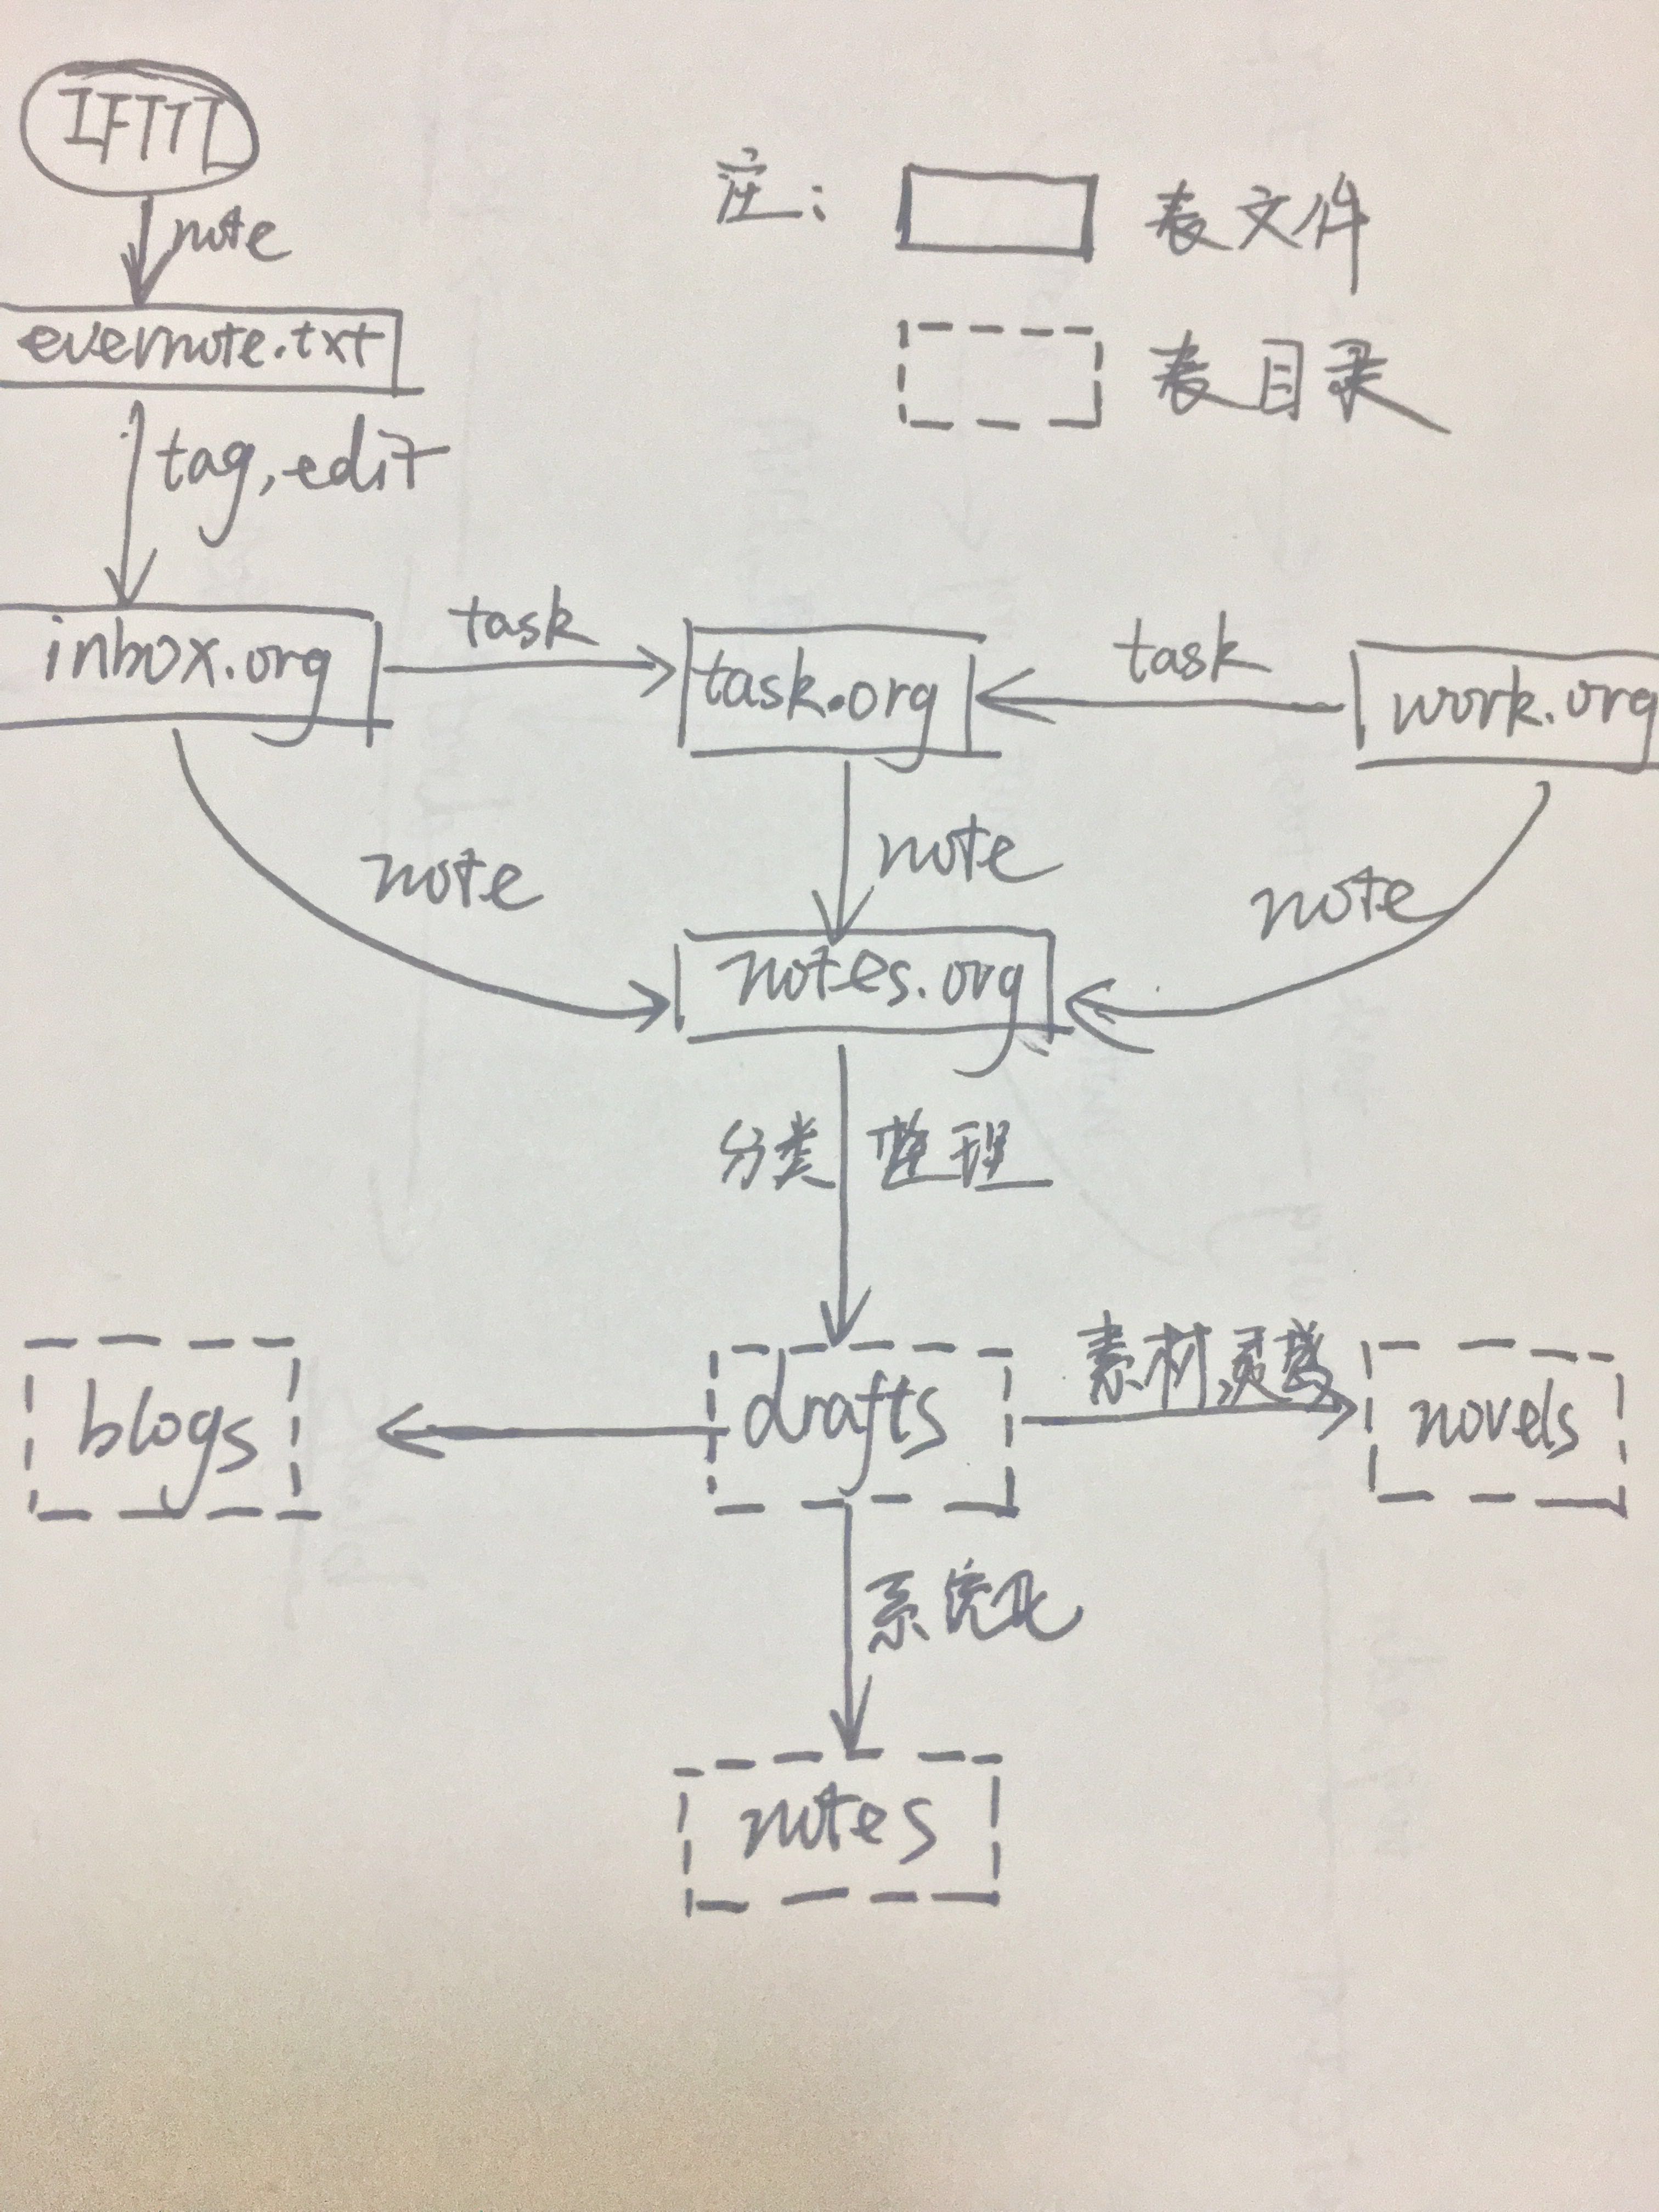 IFTTT
注: 表文件
note
evernote.txt
表目录
tag, edit
inbox.org
task
task.org
task
work.org
note
note
note
notes.org
分类 整理
blogs
drafts
素材,灵感
novels
系统化
notes